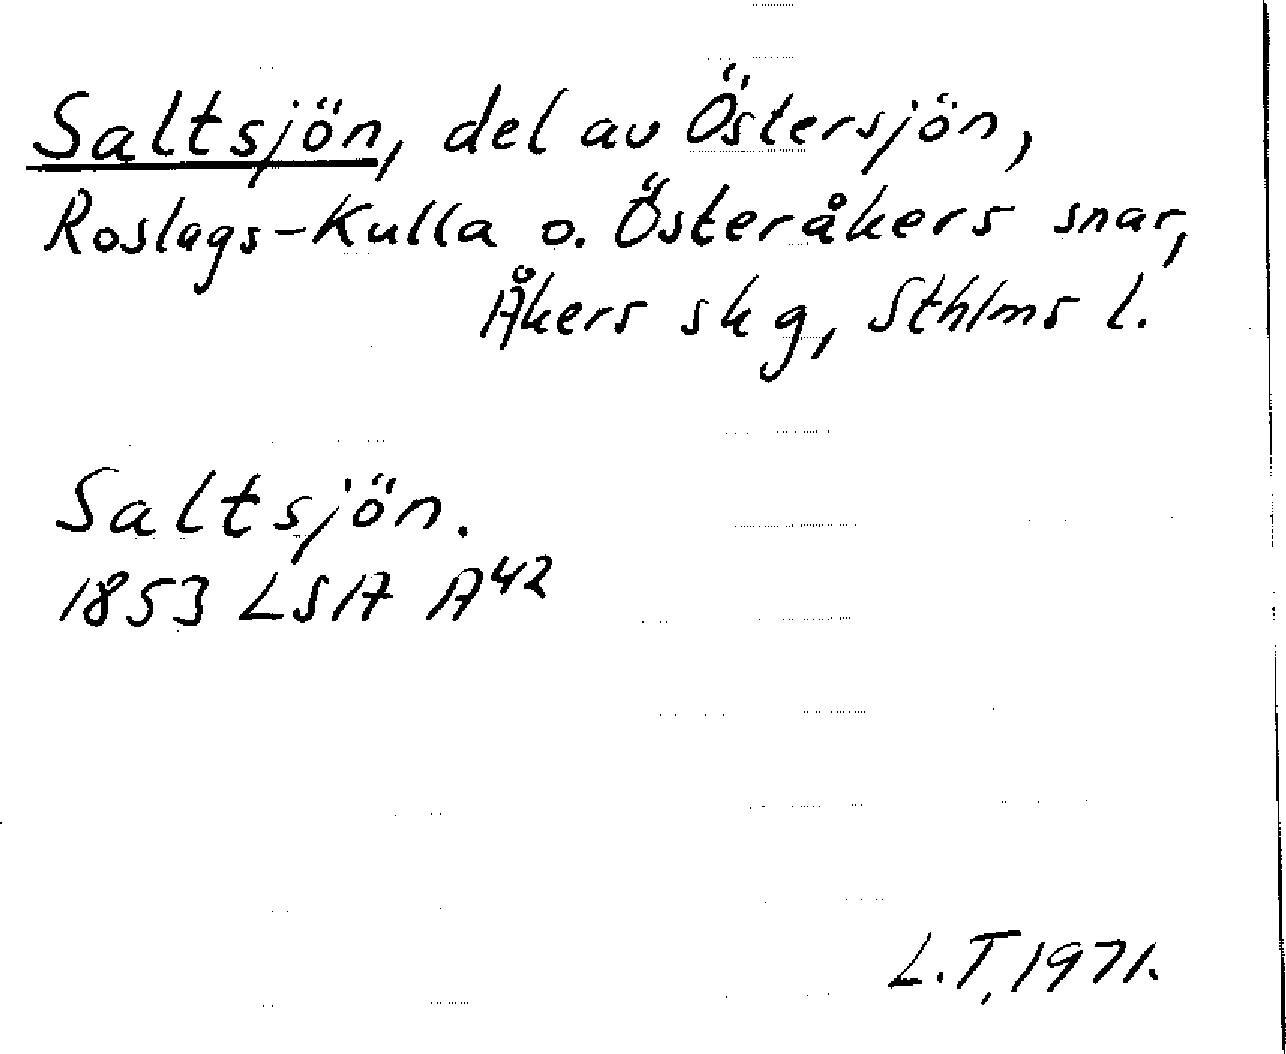 Saltsjön, del av Östersjön,
Roslags-Kulla o. Österåkers snar,
Åkers skg, Sthlms l.
Saltsjön.
1853 LSA A42
L.T, 1971.